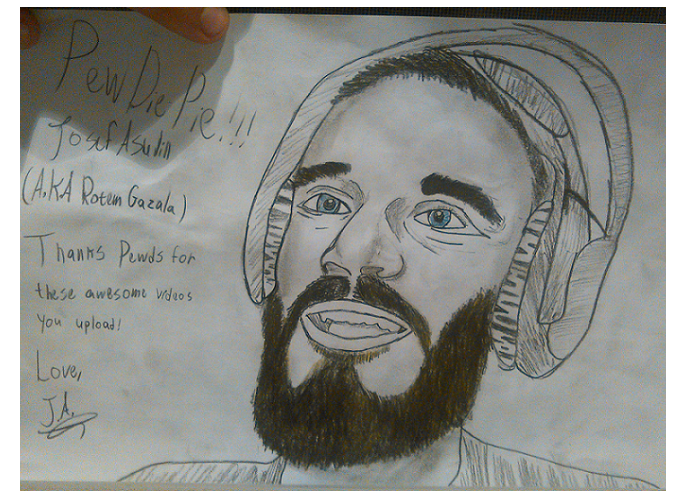 PewDiePie!!!
Josef Asulin
(A.K.A Rotem Gazala)
Thanks Pewds for
these awesome videos
you upload!
Love,
J.A.